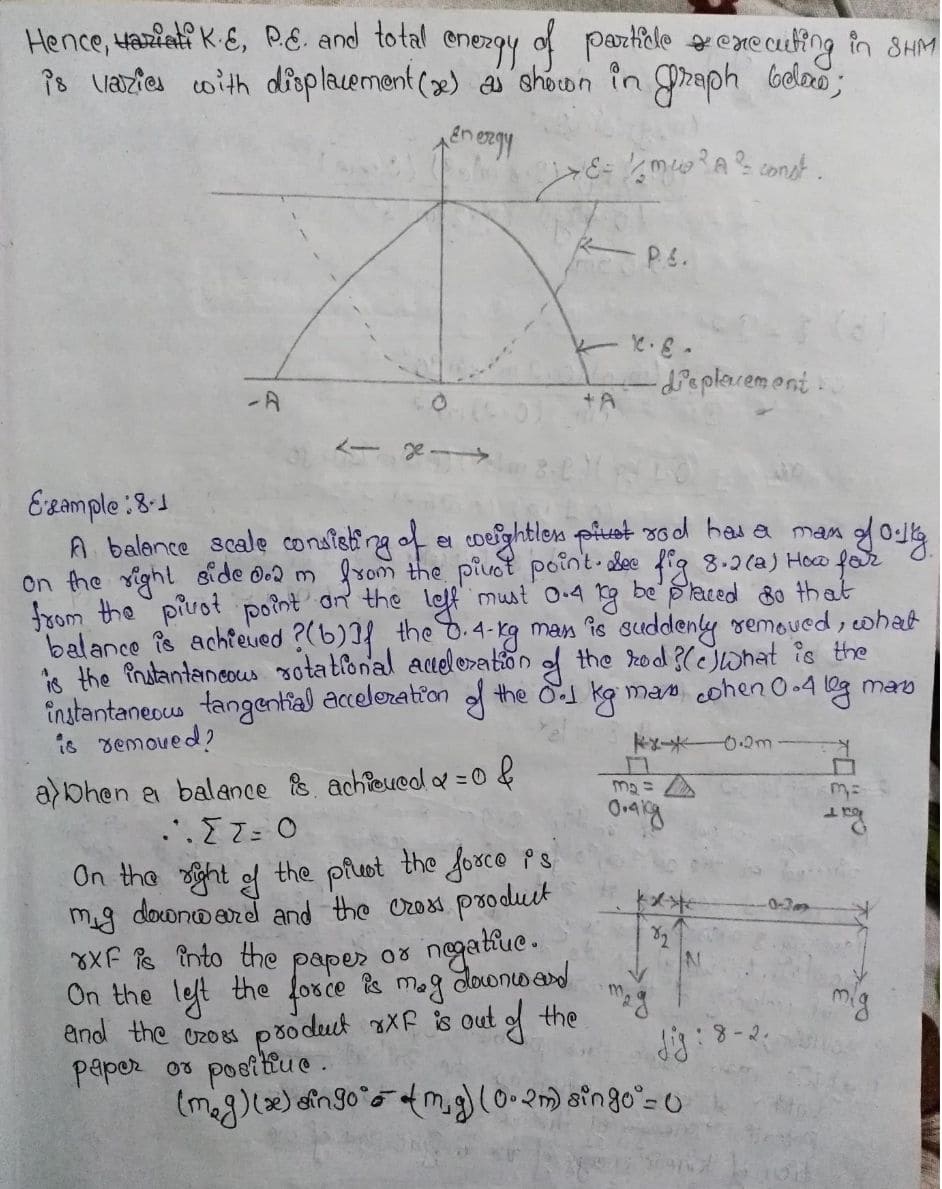 Hence, K.E, P.E. and total energy of particle executing in SHM
is varies with displacement (x) as shown in graph below;
Energy
E = ½mω²A² = const.
P.E.
K.E.
displacement.
-A
O
+A
<— x —>
Example: 8.1
A balance scale consisting of a weightless pivot rod has a mass of 0.1kg
on the right side 0.2 m from the pivot point. See fig 8.2(a) How far
from the pivot point on the left must 0.4 kg be placed so that
balance is achieved ?(b) If the 0.4-kg mass is suddenly removed, what
is the instantaneous rotational acceleration of the rod?(c) What is the
instantaneous tangential acceleration of the 0.1 kg mass when 0.4 kg mass
is removed?
x 0.2m
m₂ =
0.4kg
m₁ =
1kg
a) When a balance is achieved α = 0 &
∴ Στ = 0
On the right of the pivot the force is
m₁g downward and the cross product
r×F is into the paper or negative.
On the left the force is m₂g downward
and the cross product r×F is out of the
paper or positive.
x 0.2m
r₂
N
m₂g
m₁g
fig: 8-2.
(m₂g)(x) sin90° - (m₁g)(0.2m) sin90° = 0